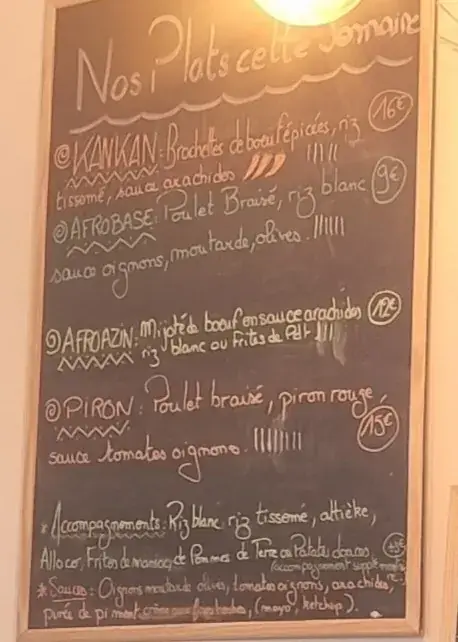 Nos Plats cette Semaine
KANKAN: Brochettes de boeuf épicées, riz 16€
tissomé, sauce arachides
AFROBASE: Poulet Braisé, riz blanc 9€
sauce oignons, moutarde, olives.
AFROAZIN: Mijoté de boeuf en sauce arachides 12€
riz blanc ou Frites de Pdt
PIRON: Poulet braisé, piron rouge,
sauce tomates oignons. 15€
* Accompagnements: Riz blanc, riz tissomé, attiéké,
Alloco, Frites de manioc, de Pommes de Terre ou Patates douces,
(accompagnement supplémentaire
* Sauces: Oignons moutarde olives, tomates oignons, arachides,
purée de piment, (mayo, ketchup).